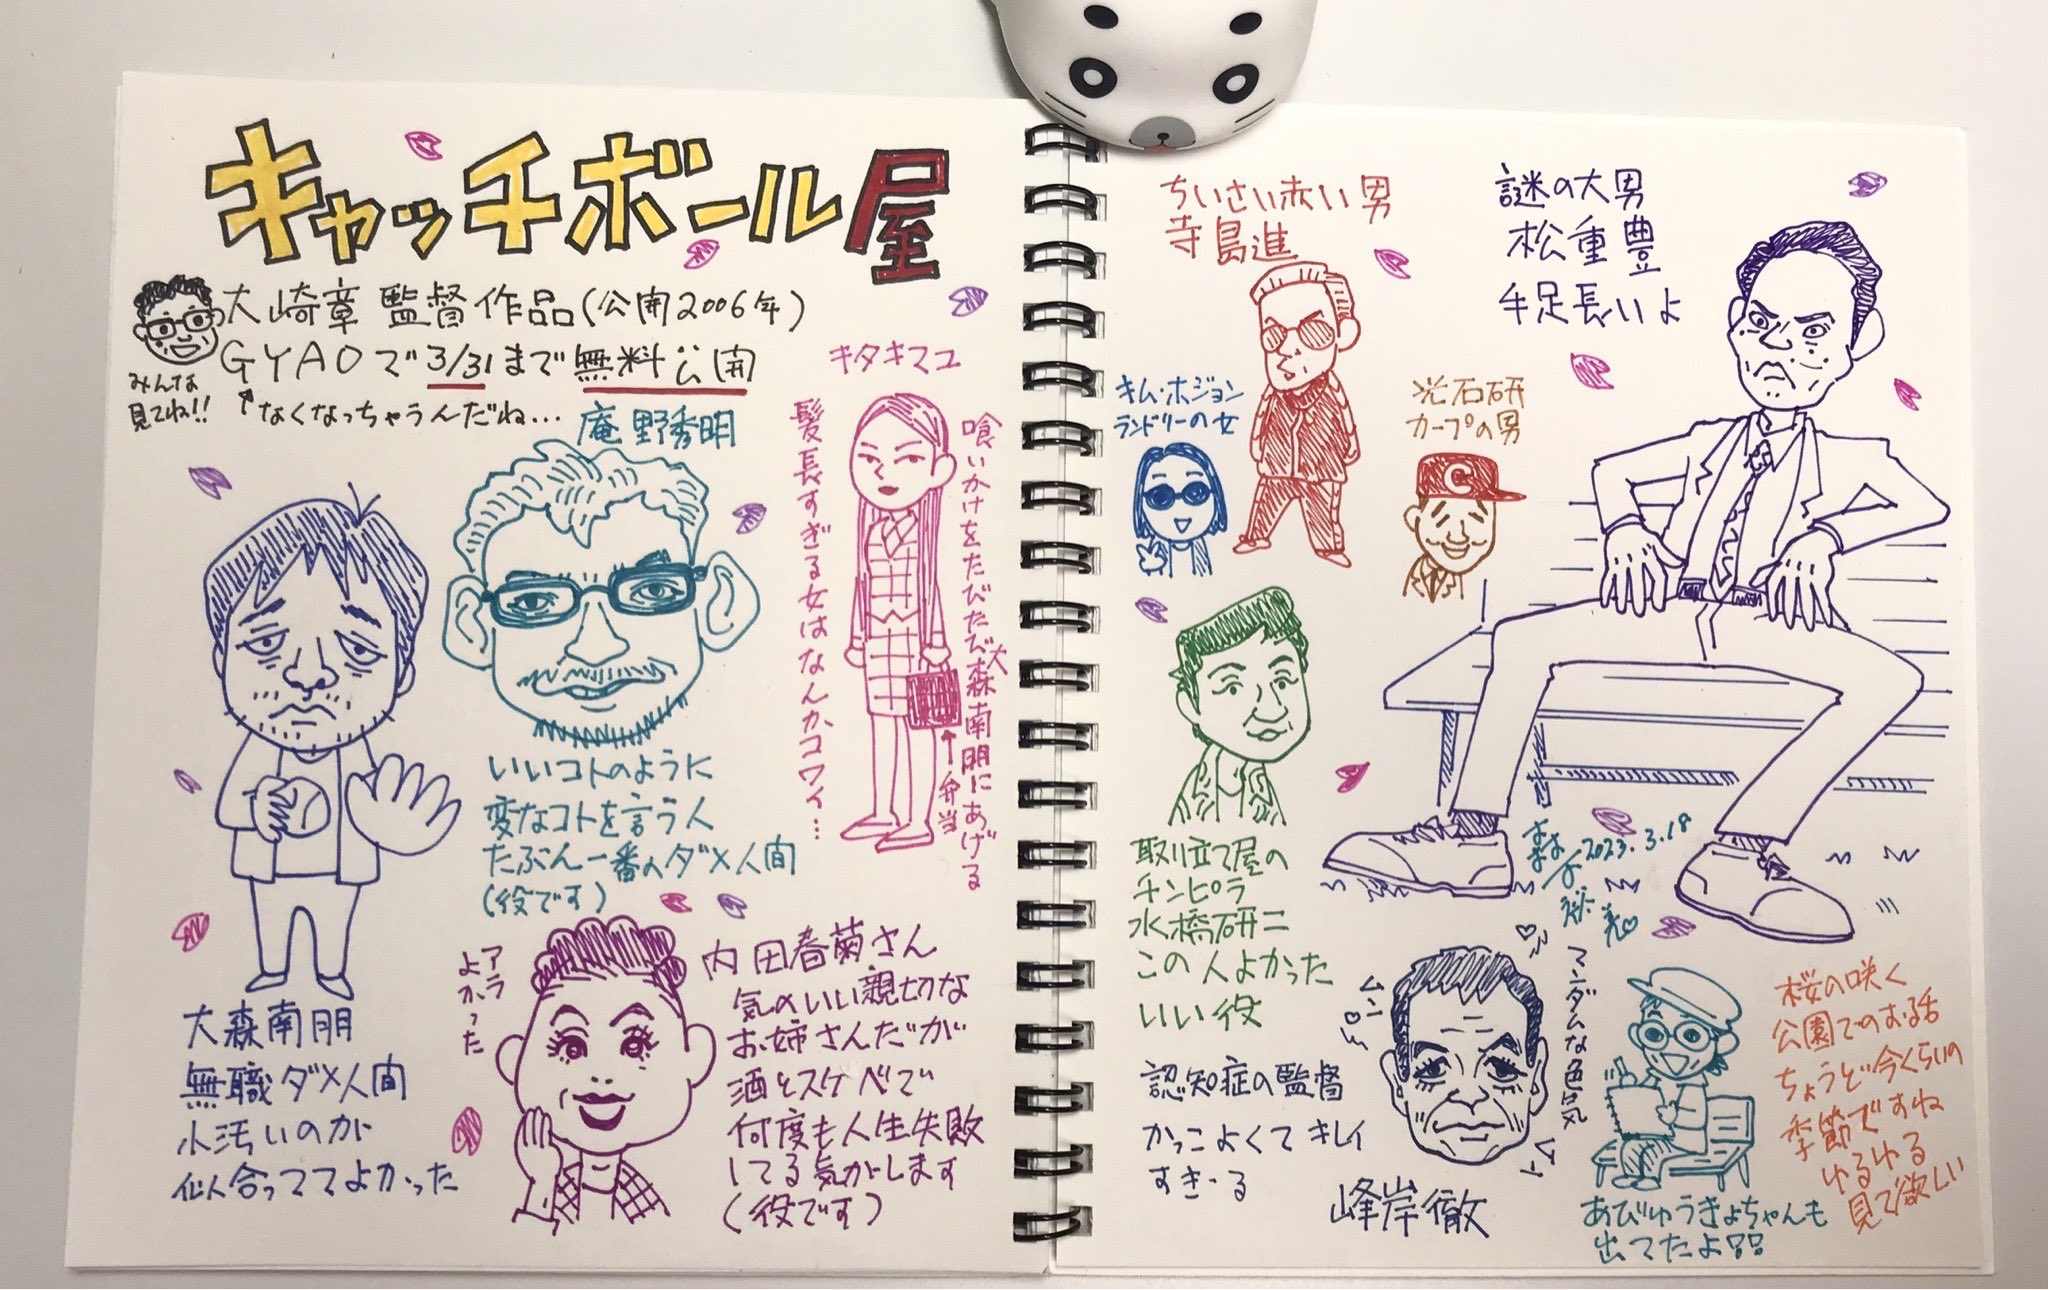 キャッチボール屋
大崎章 監督作品(公開2006年)
GYAOで3/31まで無料公開
みんな
見てね!!
なくなっちゃうんだね…
庵野秀明
いいコトのように
変なコトを言う人
たぶん一番のダメ人間
(役です)
キタキマユ
喰いかけをたびたび大森南朋にあげる
髪長すぎる女はなんかコワイ…
弁当
大森南朋
無職ダメ人間
小汚いのが
似合っててよかった
アラ
よかった
内田春菊さん
気のいい親切な
お姉さんだが
酒とスケベで
何度も人生失敗
してる気がします
(役です)
ちいさい赤い男
寺島進
謎の大男
松重豊
手足長いよ
キム・ホジョン
ランドリーの女
光石研
カープの男
C
取り立て屋の
チンピラ
水橋研二
この人よかった
いい役
2023.3.18
認知症の監督
かっこよくてキレイ
すぎーる
ムンッ
マンダムな色気
峰岸徹
桜の咲く
公園でのお話
ちょうど今くらいの
季節ですね
ゆるゆる
見て欲しい
あびゅうきょちゃんも
出てたよ